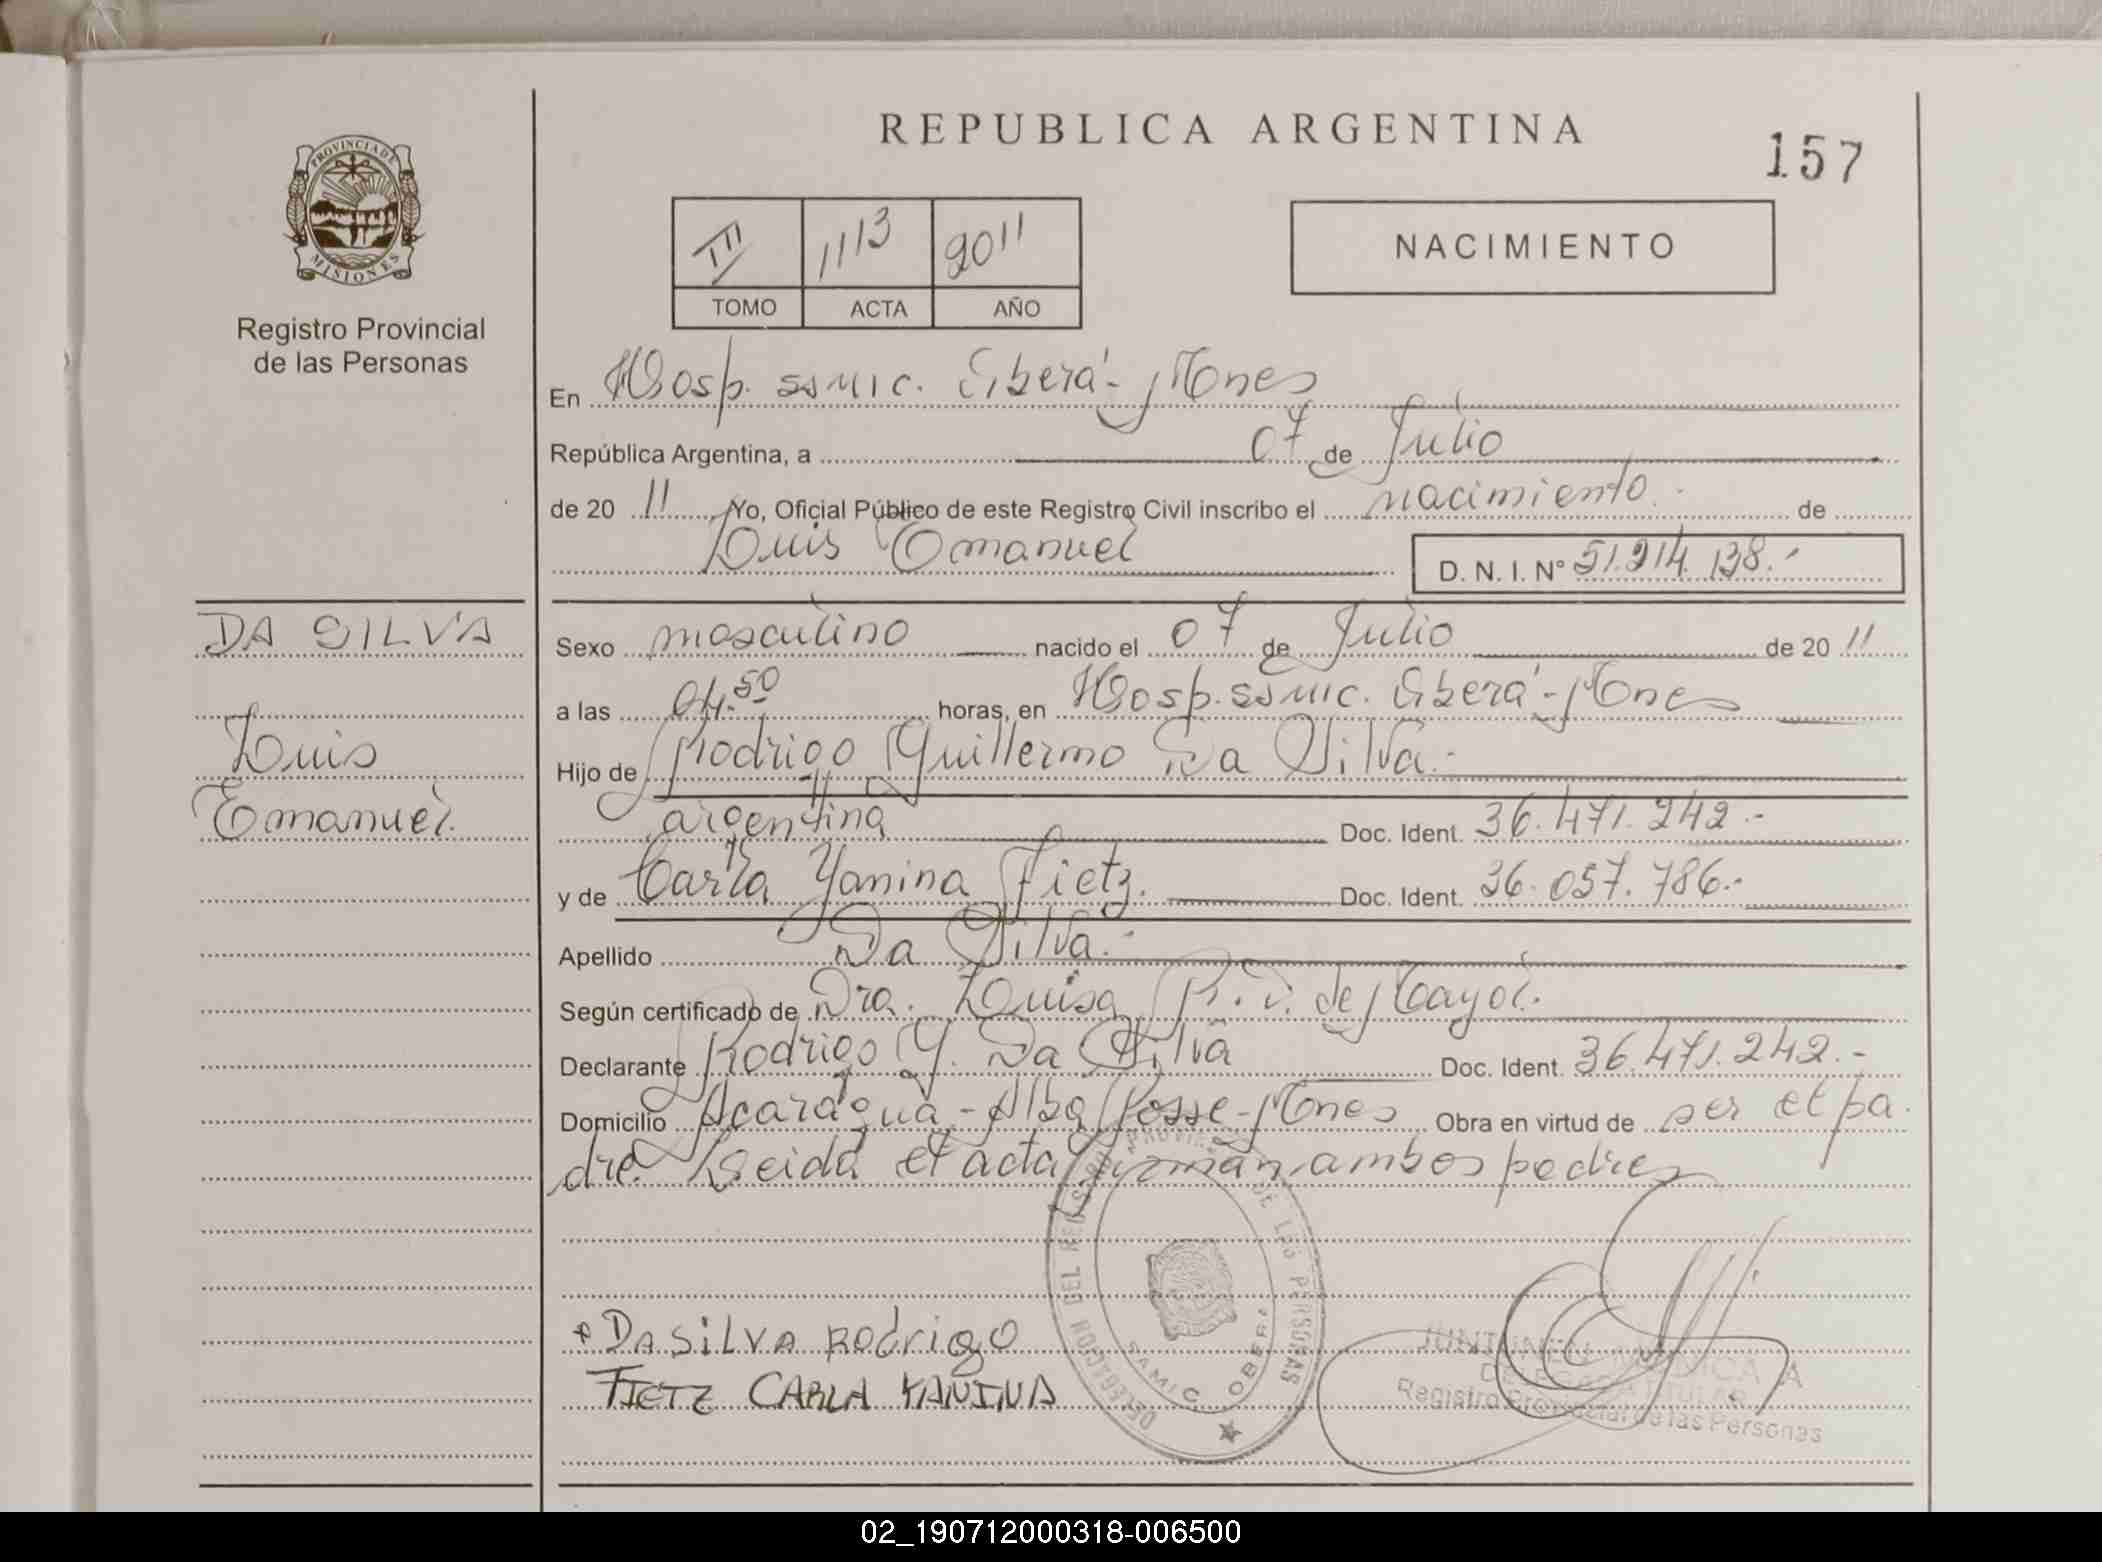 REPUBLICA ARGENTINA
157
PROVINCIA DE MISIONES
Registro Provincial
de las Personas
III 1113 2011
TOMO ACTA AÑO
NACIMIENTO
En Hosp. ssmic. Oberá - Mones
República Argentina, a 07 de Julio
de 20 11 Yo, Oficial Público de este Registro Civil inscribo el nacimiento. de
Luis Emanuel D. N. I. N° 51.214.138.-
DA SILVA
Luis
Emanuel.
Sexo masculino nacido el 07 de Julio de 20 11
a las 04.50 horas, en Hosp. ssmic. Oberá - Mones
Hijo de Rodrigo Guillermo Da Silva.-
argentina Doc. Ident. 36.471.242.-
y de Carla Yanina Fietz. Doc. Ident. 36.057.786.-
Apellido Da Silva.-
Según certificado de Dra. Luisa R. V. de Mayol.
Declarante Rodrigo G. Da Silva Doc. Ident. 36.471.242.-
Domicilio Acaragua - Alba Posse - Mones Obra en virtud de ser el pa
dre. Leida el acta firman ambos padres
DELEGACION DEL REGISTRO PROVINCIAL DE LAS PERSONAS
SAMIC OBERA
* DA SiLVA RODrigo
FIETZ CARLA YANINA
DELEGADA TITULAR
Registro Provincial de las Personas
02_190712000318-006500